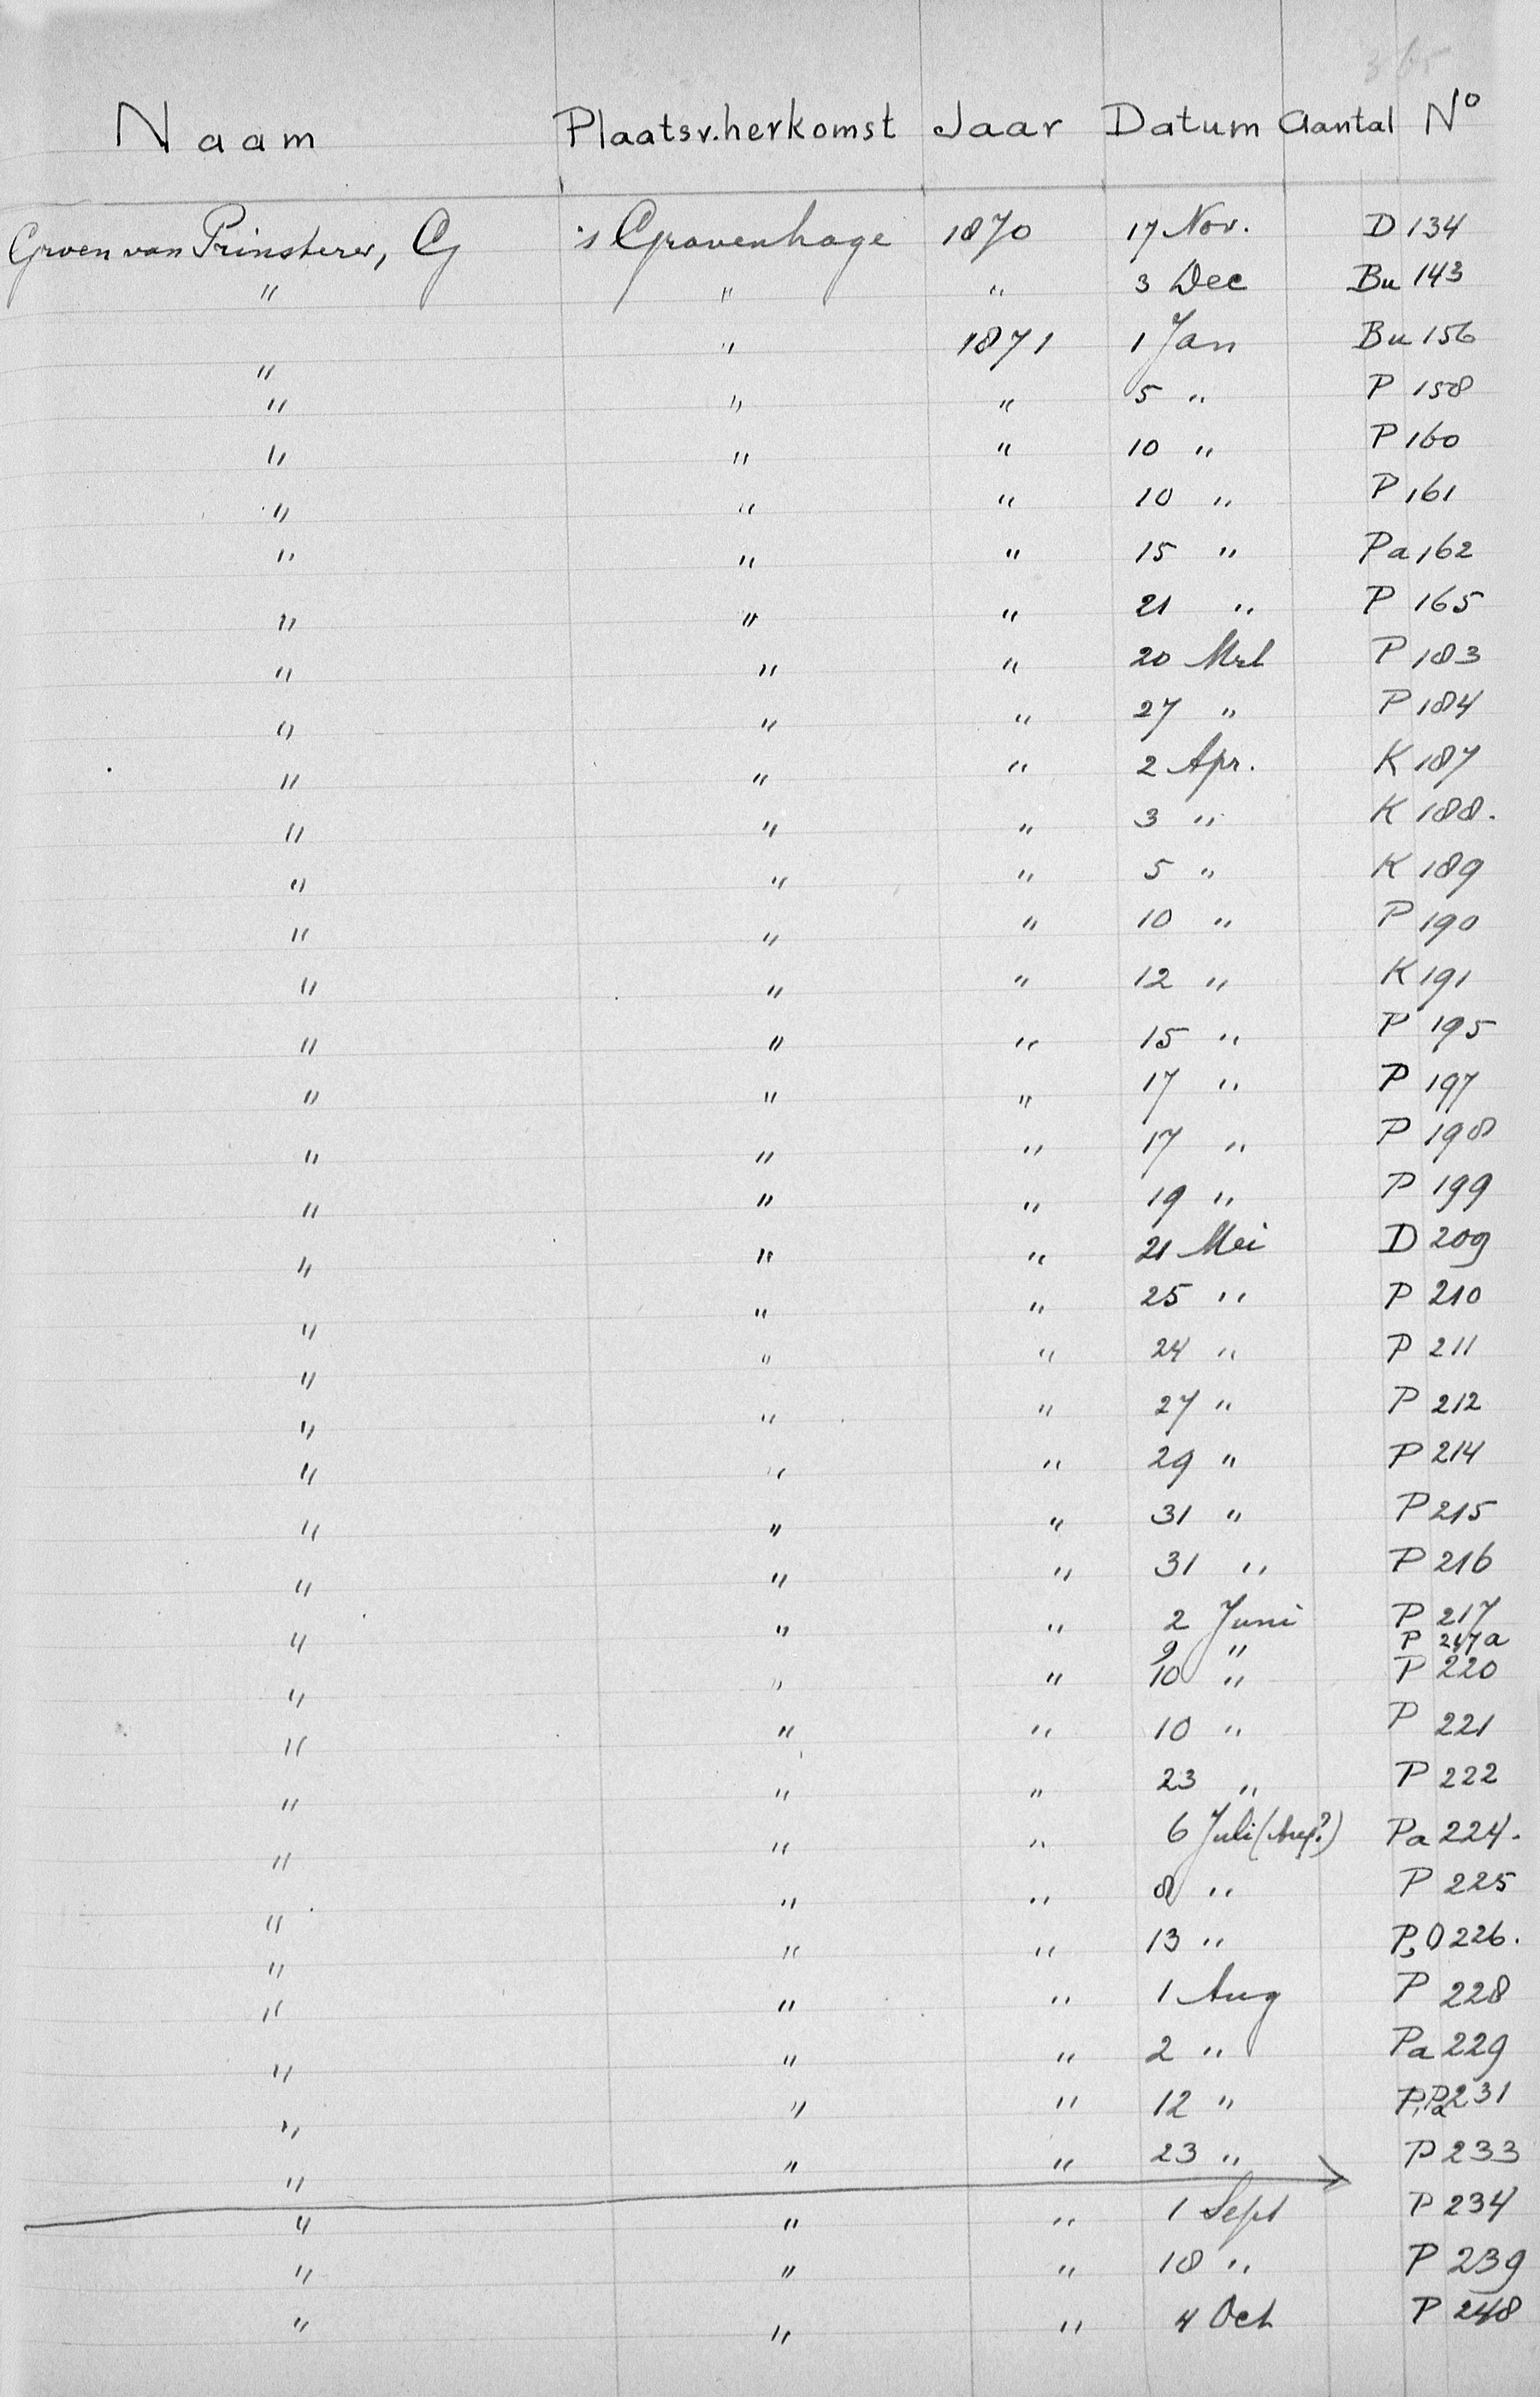 365
Naam Plaats v. herkomst Jaar Datum Aantal Nº
Groen van Prinsterer, G 's Gravenhage 1870 17 Nov. D 134
" " " 3 Dec Bu 143
" " 1871 1 Jan Bu 156
" " " 5 " P 158
" " " 10 " P 160
" " " 10 " P 161
" " " 15 " Pa 162
" " " 21 " P 165
" " " 20 Mrt P 183
" " " 27 " P 184
" " " 2 Apr. K 187
" " " 3 " K 188.
" " " 5 " K 189
" " " 10 " P 190
" " " 12 " K 191
" " " 15 " P 195
" " " 17 " P 197
" " " 17 " P 198
" " " 19 " P 199
" " " 21 Mei D 209
" " " 25 " P 210
" " " 24 " P 211
" " " 27 " P 212
" " " 29 " P 214
" " " 31 " P 215
" " " 31 " P 216
" " " 2 Juni P 217
9 " P 217a
" " " 10 " P 220
" " " 10 " P 221
" " " 23 " P 222
" " " 6 Juli (Aug?) Pa 224.
" " " 8 " P 225
" " " 13 " P, O 226.
" " " 1 Aug P 228
" " " 2 " Pa 229
" " " 12 " P, Pa 231
" " " 23 " P 233
" " " 1 Sept P 234
" " " 18 " P 239
" " " 4 Oct P 248